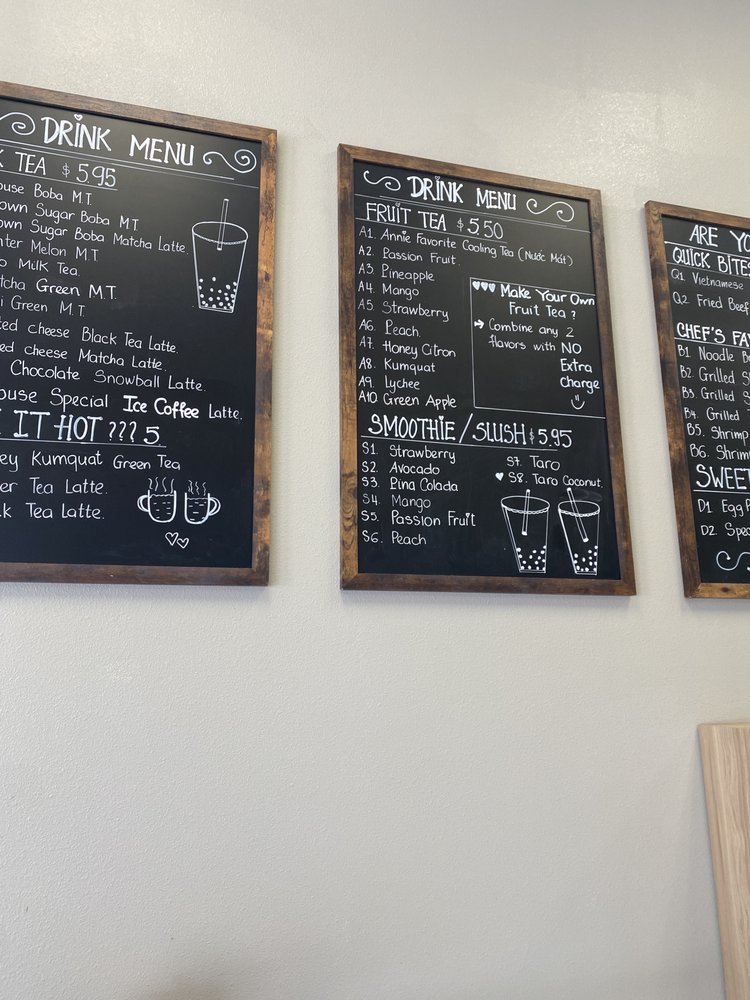 DRINK MENU
TEA $5.95
Boba M.T.
Sugar Boba M.T
Sugar Boba Matcha Latte.
Melon M.T
Milk Tea.
Green M.T.
Green M.T.
cheese Black Tea Latte.
cheese Matcha Latte.
Chocolate Snowball Latte.
Special Ice Coffee Latte.
IT HOT ??? 5
Kumquat Green Tea
Tea Latte.
Tea Latte.
DRINK MENU
FRUIT TEA $5.50
A1. Annie Favorite Cooling Tea (Nước Mát)
A2. Passion Fruit
A3. Pineapple
A4. Mango
A5. Strawberry
A6. Peach
A7. Honey Citron
A8. Kumquat
A9. Lychee
A10 Green Apple
Make Your Own
Fruit Tea ?
Combine any 2
flavors with NO
Extra
Charge
SMOOTHIE / SLUSH $5.95
S1. Strawberry
S2. Avocado
S3. Pina Colada
S4. Mango
S5. Passion Fruit
S6. Peach
S7. Taro
S8. Taro Coconut.
ARE
QUICK BITES
Q1 Vietnamese
Q2 Fried Beef
CHEF'S
B1 Noodle
B2 Grilled
B3 Grilled
B4. Grilled
B5. Shrimp
B6. Shrimp
SWEET
D1 Egg
D2.